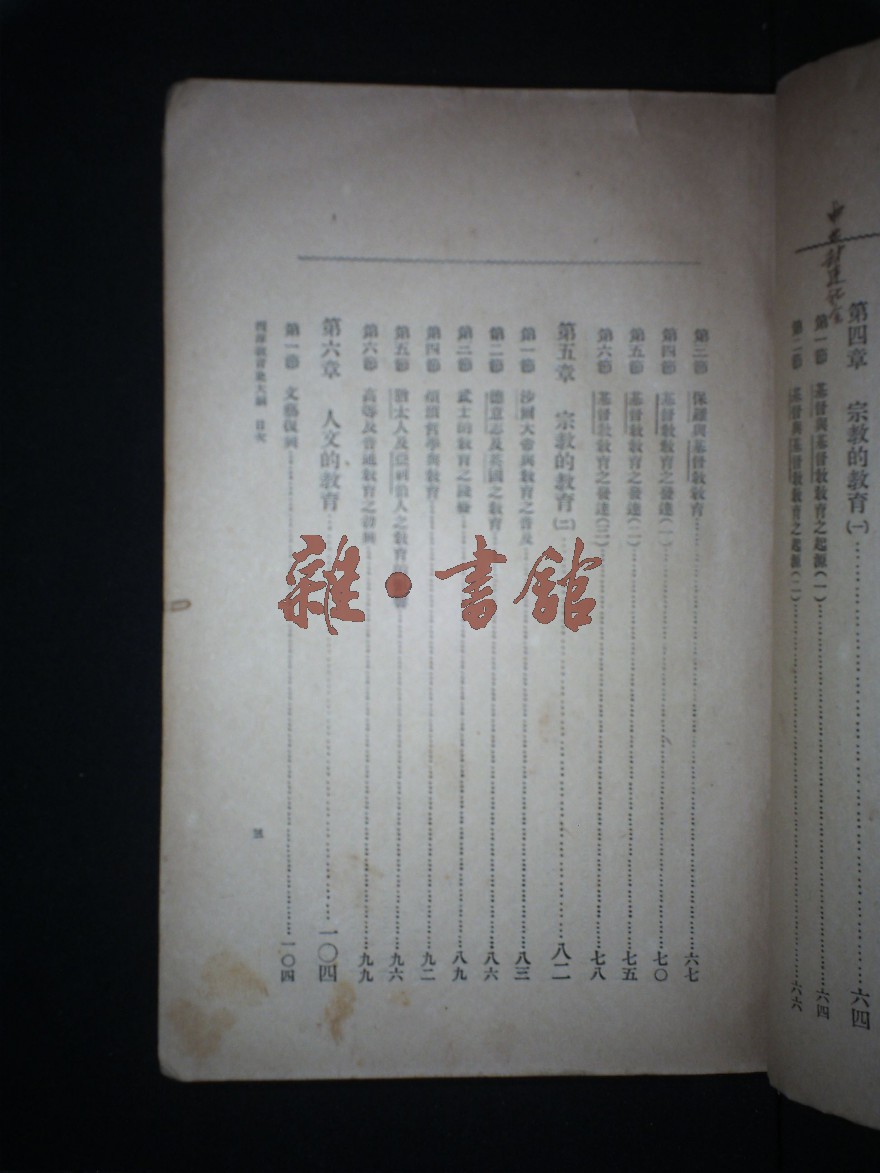 第四章　宗教的教育(一)……六四
第一節　基督與基督教教育之起源(一)……六四
第二節　基督與基督教教育之起源(二)……六六
第三節　保羅與基督教教育……六七
第四節　基督教教育之發達(一)……七〇
第五節　基督教教育之發達(二)……七五
第六節　基督教教育之發達(三)……七八
第五章　宗教的教育(二)……八二
第一節　沙爾大帝與教育之普及……八三
第二節　德意志及英國之教育……八六
第三節　武士的教育之……八九
第四節　煩瑣哲學與教育……九二
第五節　猶太人及亞剌伯人之教育……九六
第六節　高等及普通教育之發展……九九
第六章　人文的教育……一〇四
第一節　文藝復興……一〇四
西洋教育史大綱　目次
五
雜·書館